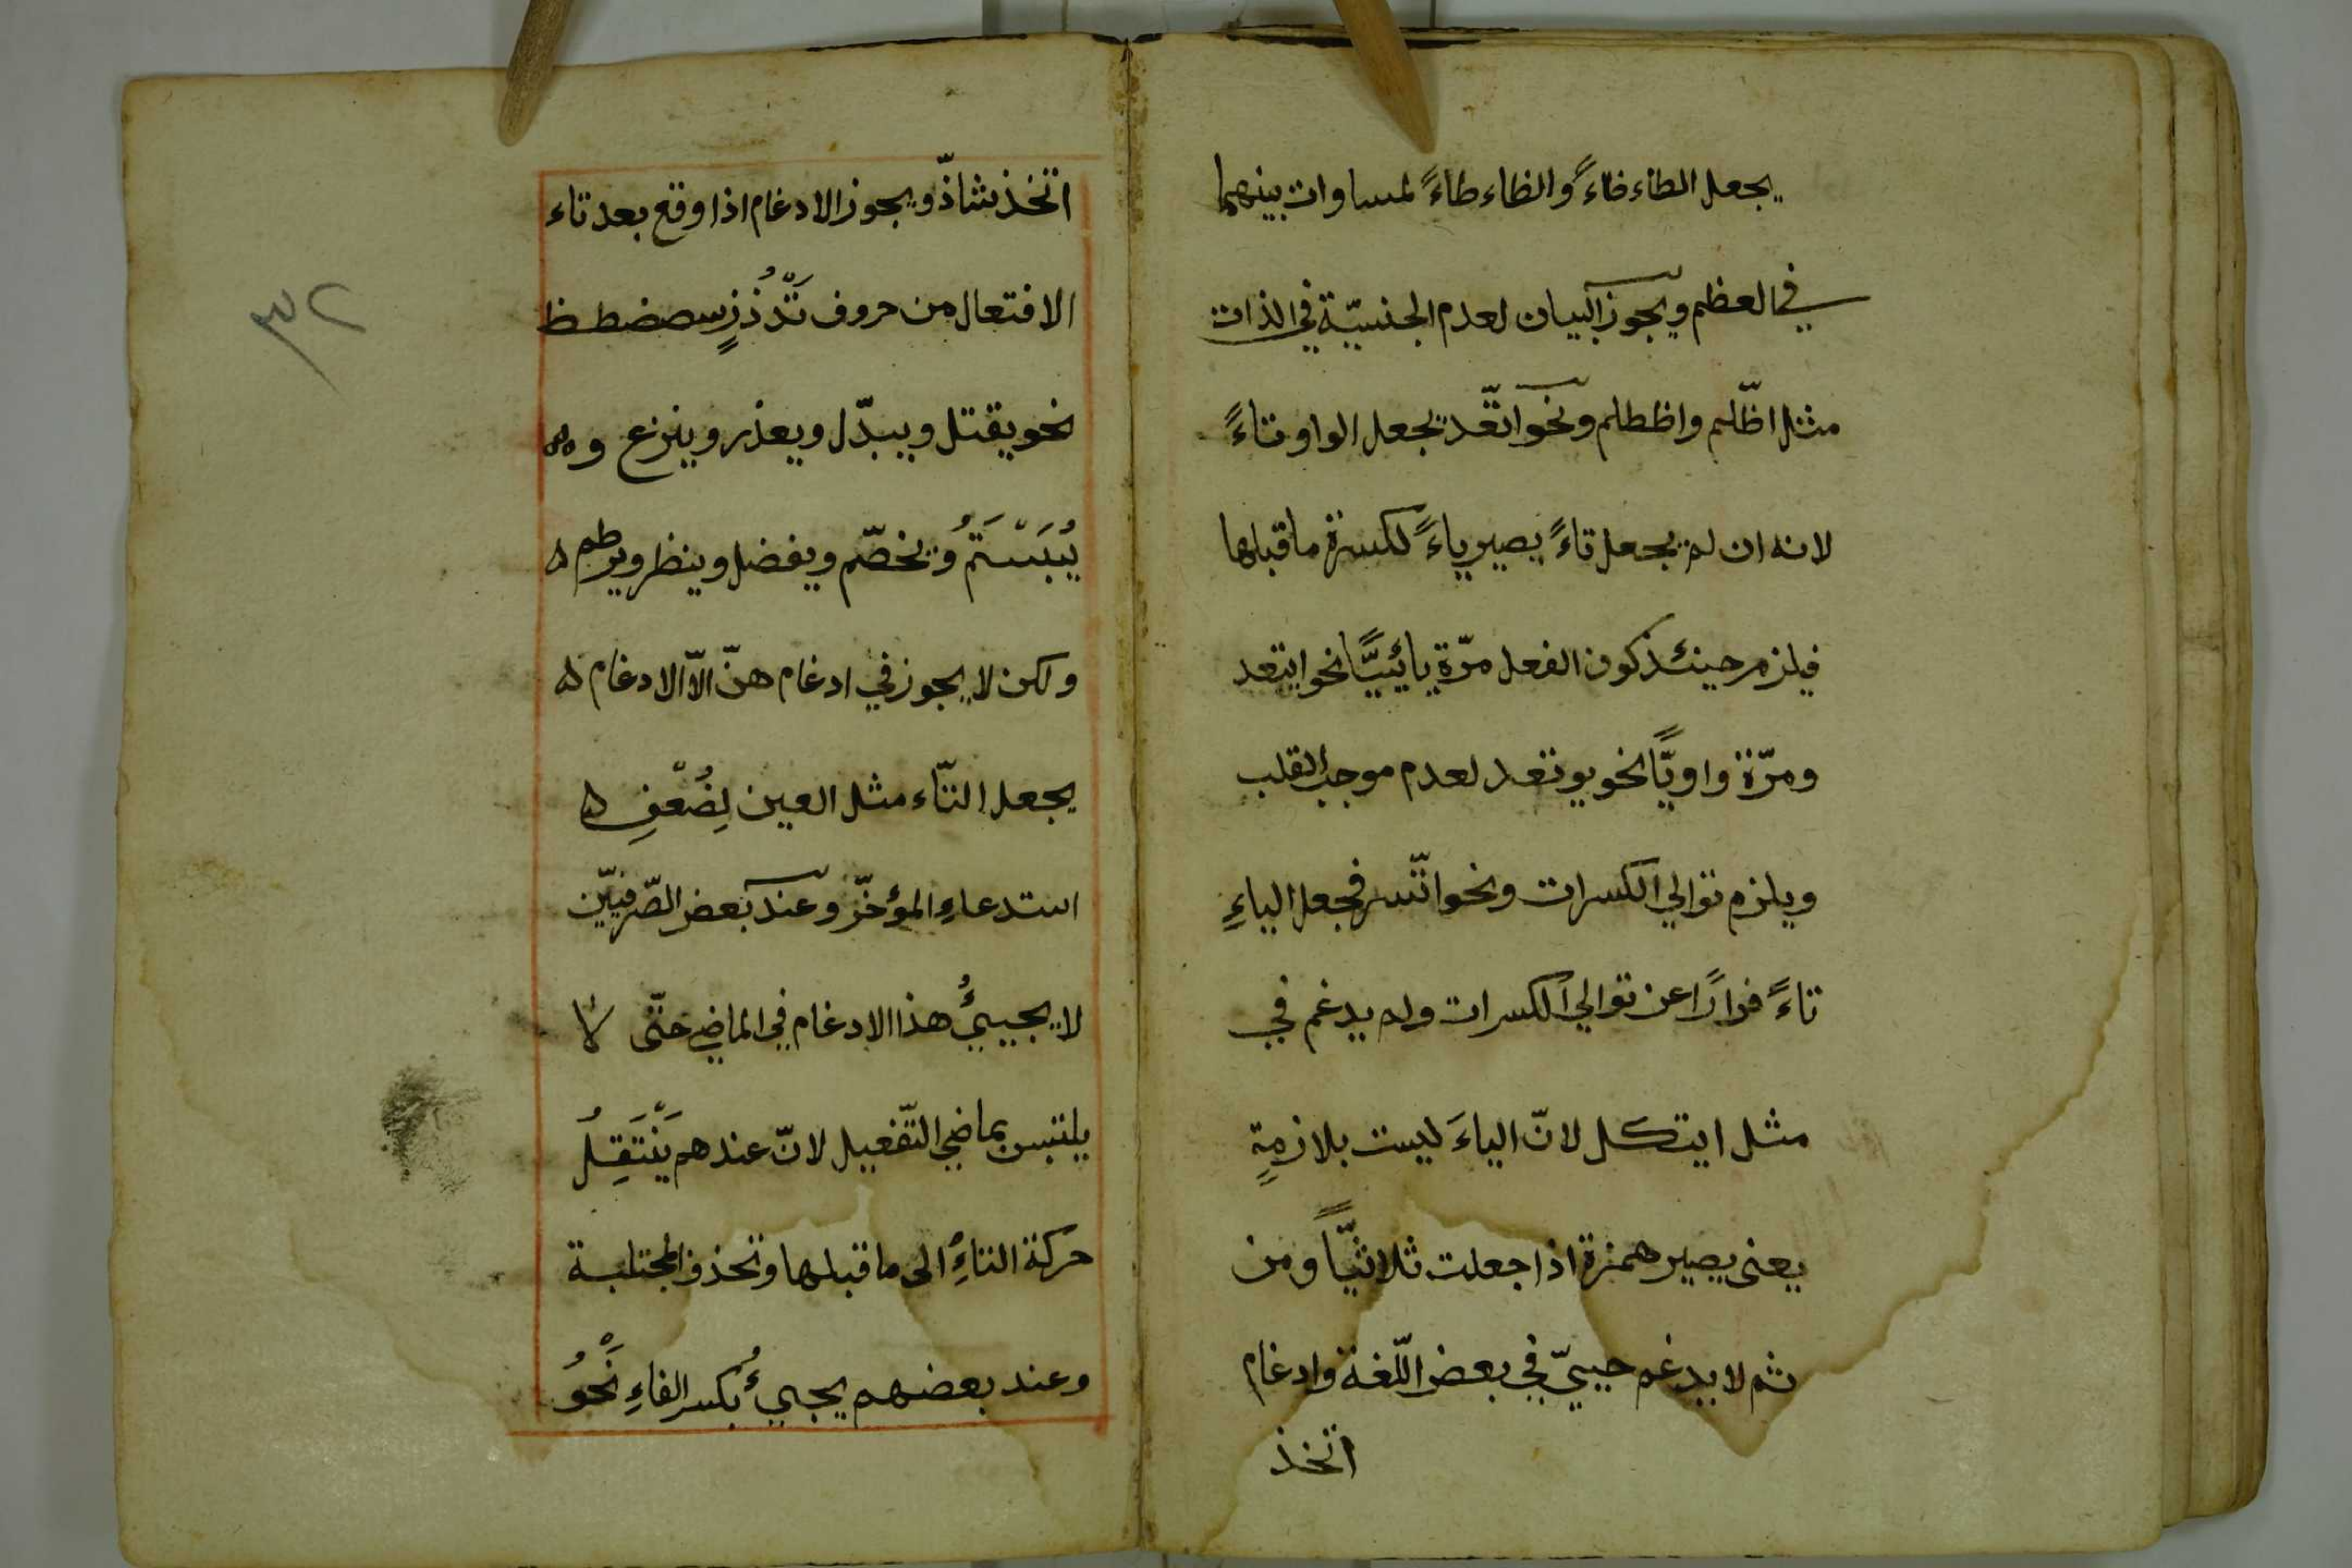 يجعل الطاء ظاءً والظاء طاءً لمساوات بينهما
في العظم ويجوز البيان لعدم الجنسيّة في الذات
مثل اظّلم واظطلم ونحو اتّعد يجعل الواو تاءً
لانه ان لم يجعل تاءً يصير ياءً لكسرة ما قبلها
فيلزم حينئذ كون الفعل مرّة يائيًّا نحو ايتعد
ومرّة واويًّا نحو يوتعد لعدم موجب القلب
ويلزم توالي الكسرات ونحو اتّسر فجعل الياءِ
تاءً فرارًا عن توالي الكسرات ولم يدغم في
مثل ايتكل لانّ الياءَ ليست بلازمةٍ
يعنى يصير همزة اذا جعلت ثلاثيًّا ومن
ثم لا يدغم حيىّ في بعض اللّغة وادغام
اتخذ
اتّخذ شاذّ ويجوز الادغام اذا وقع بعد تاء
الافتعال من حروف تَدْذُزٍسصضطظ
نحو يقتل ويبدّل ويعذر وينزع و
يُبَسْتَمُ ويخصّم ويفضل وينظر ويرطم
ولكن لا يجوز في ادغام هنّ الّا الادغام
يجعل التّاء مثل العين لِضُعْفِ
استدعاءِ المؤخّر وعند بعض الصّرفيّين
لا يجيئُ هذا الادغام في الماضي حتّى لا
يلتبس بماضي التّفعيل لانّ عندهم يَنْتَقِلُ
حركة التاءِ الى ما قبلها وتحذف المجتلبة
وعند بعضهم يجيئُ بكسر الفاءِ نَحْوُ
٣٢